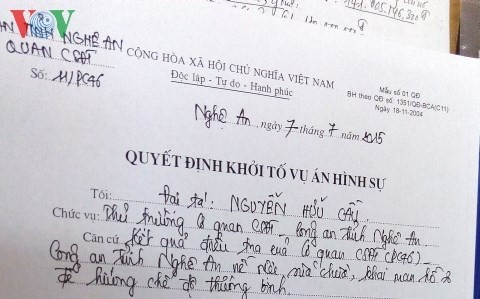 VOV
AN TỈNH NGHỆ AN
QUAN CSĐT
Số: 11/PC46
CỘNG HÒA XÃ HỘI CHỦ NGHĨA VIỆT NAM
Độc lập - Tự do - Hạnh phúc
Mẫu số 01 QĐ
BH theo QĐ số: 1351/QĐ-BCA(C11)
Ngày 18-11-2004
Nghệ An, ngày 7 tháng 7 năm 2015
QUYẾT ĐỊNH KHỞI TỐ VỤ ÁN HÌNH SỰ
Tôi: Đại tá: NGUYỄN HỮU CẦU
Chức vụ: Thủ trưởng Cơ quan CSĐT - Công an tỉnh Nghệ An
Căn cứ kết quả điều tra của Cơ quan CSĐT (PC46) -
Công an tỉnh Nghệ An về việc sửa chữa, khai man hồ sơ
để hưởng chế độ thương binh.